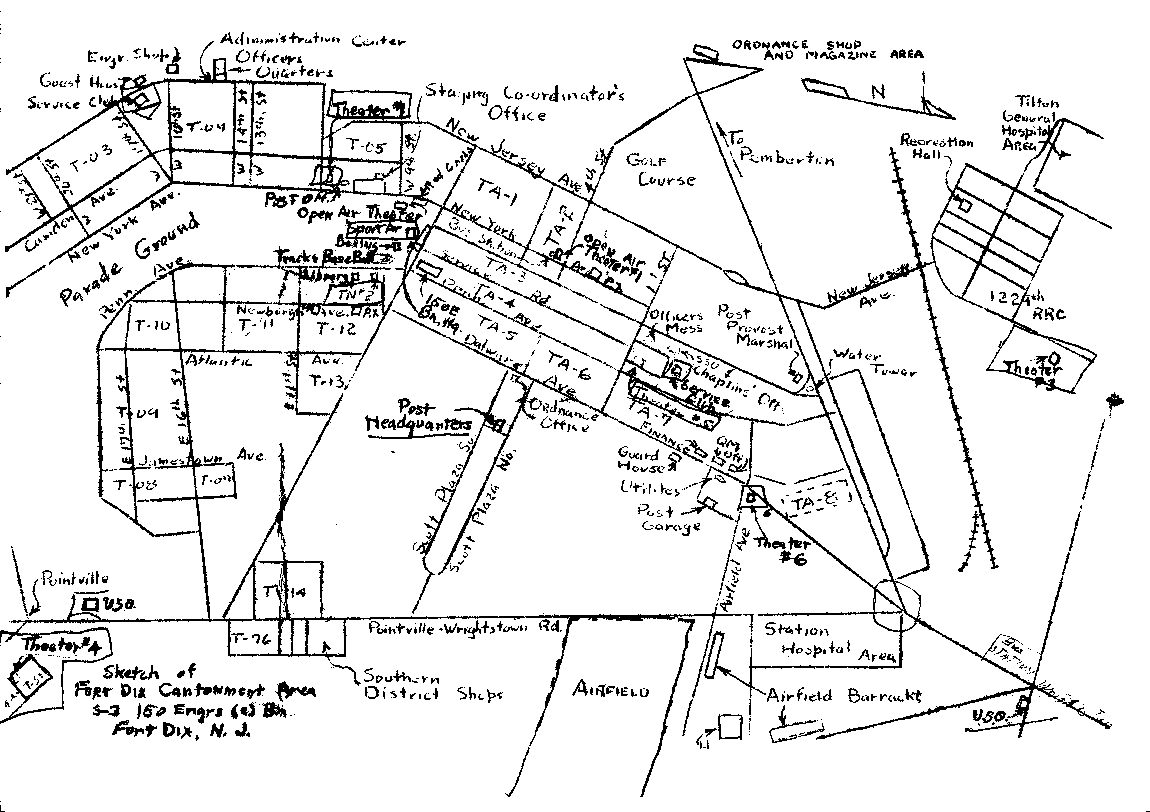 Administration Center
Officers
Quarters
Engr. Shop
Guest House
Service Club
Theater #1
Staging Co-ordinator's
Office
ORDNANCE SHOP
AND MAGAZINE AREA
N
Tilton
General
Hospital
Area
Recreation
Hall
To
Pemberton
Golf
Course
New Jersey Ave
4th St
T-03
T-04
T-05
14th St
13th St
W
W
W
Camden Ave.
New York Ave.
Parade Ground
Penn Ave.
Open Air Theater
Sport Ar
Boxing
Tracks BaseBall
Library
TN#2
TA-1
TA-2
New York
TA-3
TA-4
Service Rd
TA-5
TA-6
Delaware
Ave
Open Air
Theater
1 St
150E
Bn. Hq.
T-10
T-11
T-12
Newburgh Ave.
Atlantic Ave.
T-13
T-09
E 17th St
E 16th St
Jamestown Ave.
T-08
Officers
Mess
Post
Provost
Marshal
Chaplins' Off.
Service
Club
Theater #5
TA-7
Water
Tower
New Jersey
Ave.
1229th
RRC
Theater
#3
Post
Headquarters
Ordnance
Office
Scott Plaza So.
Scott Plaza No.
Finance
QM
Off
Guard
House
Utilites
Post
Garage
TA-8
Theater
#6
Airfield Ave
Pointville
USO
Theater #4
T-14
T-76
Pointville-Wrightstown Rd.
Southern
District Shops
AIRFIELD
Station
Hospital Area
Airfield Barracks
USO
Sketch of
Fort Dix Cantonment Area
S-3 150 Engrs (c) Bn.
Fort Dix, N. J.